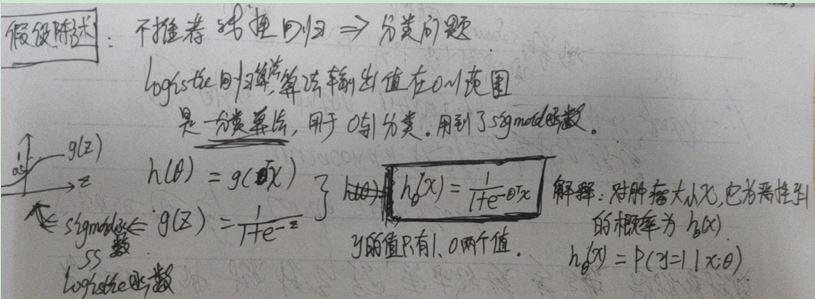 假设陈述: 不推荐线性回归 ⇒ 分类问题.
logistic 回归算法,算法输出值在0~1范围
是一分类算法, 用于0与1分类. 用到了sigmoid函数。
g(z)
z
h(θ) = g(θᵀx)
g(z) = 1/(1+e^-z)
h_θ(x) = 1/(1+e^-θᵀx)
y的值只有1、0两个值.
解释: 对肿瘤大小x, 它为恶性y=1
的概率为 h_θ(x)
h_θ(x) = P(y=1|x;θ)
sigmoid函
数
logistic函数